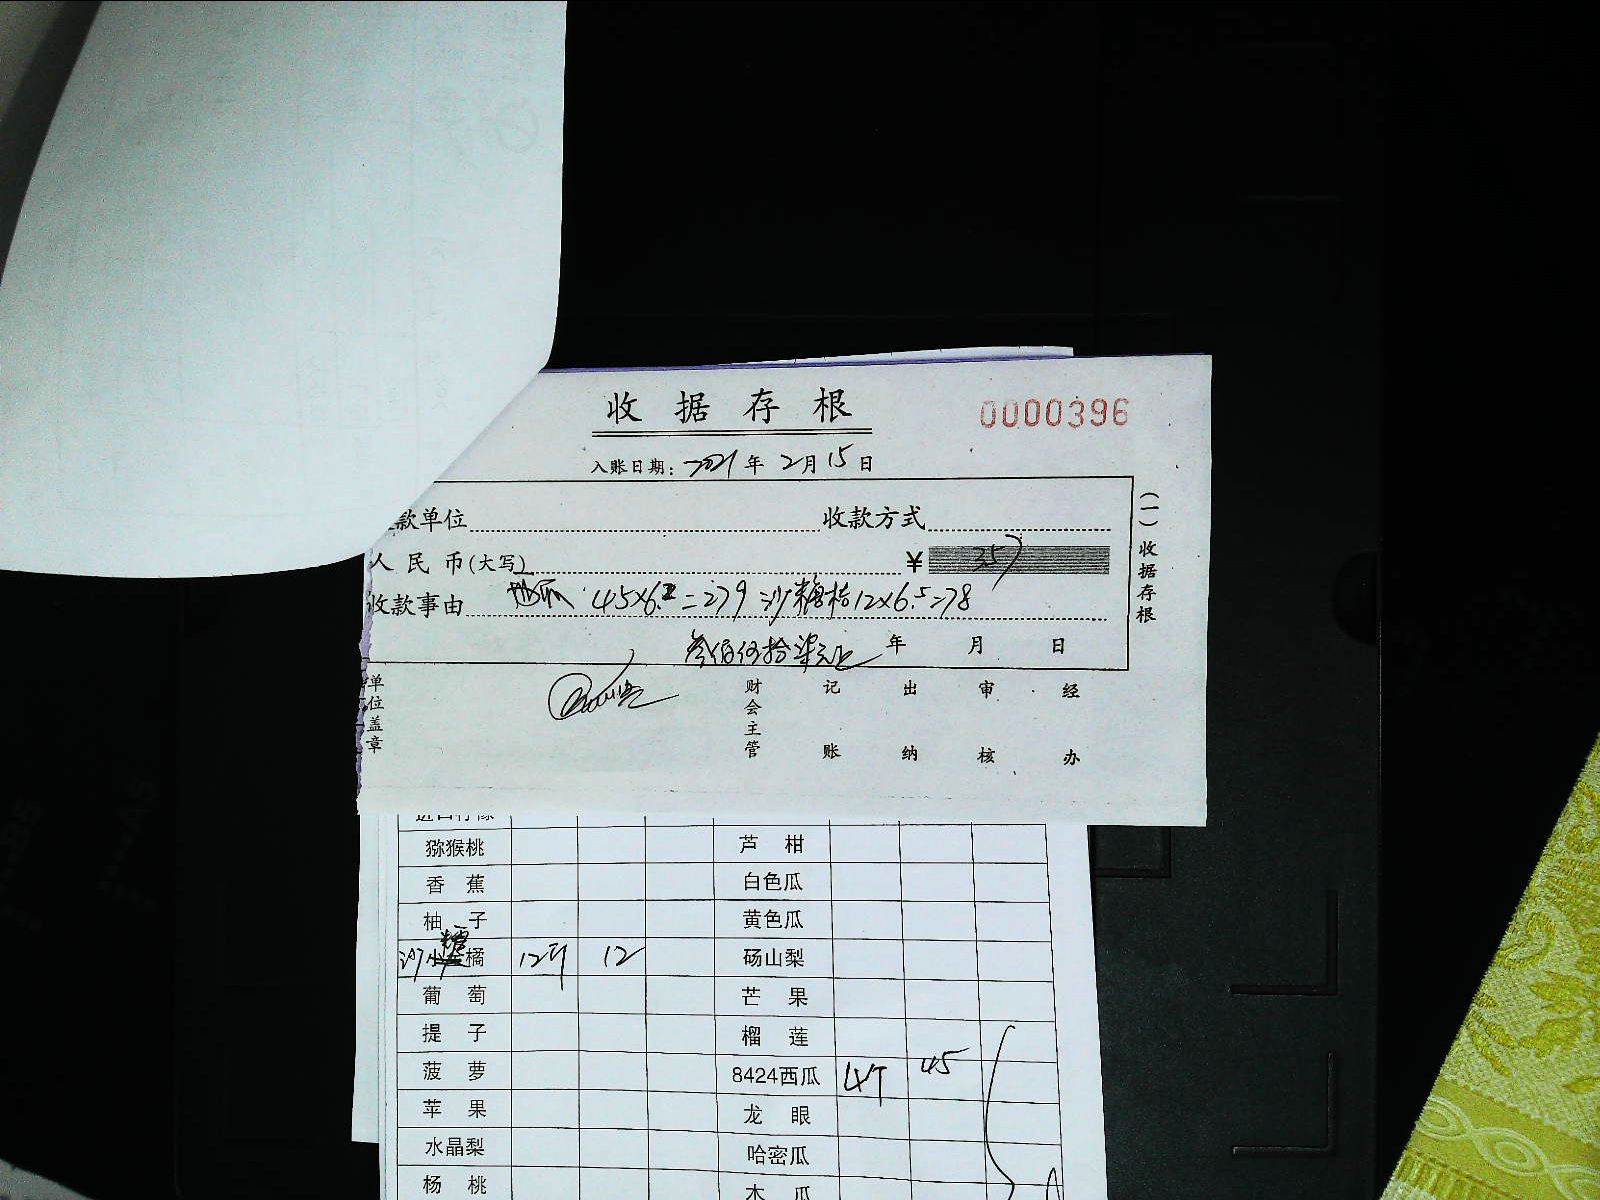 收据存根
0000396
入账日期：2021年2月15日
款单位 收款方式
人民币(大写) ¥ 357
收款事由 45×6.2=279 沙糖桔12×6.5=78
叁佰伍拾柒元正 年 月 日
(一)收据存根
单位盖章 财会主管 记账 出纳 审核 经办
猕猴桃 芦柑
香蕉 白色瓜
柚子 黄色瓜
沙糖橘 12斤 12 砀山梨
葡萄 芒果
提子 榴莲
菠萝 8424西瓜 4个 45
苹果 龙眼
水晶梨 哈密瓜
杨桃 木瓜